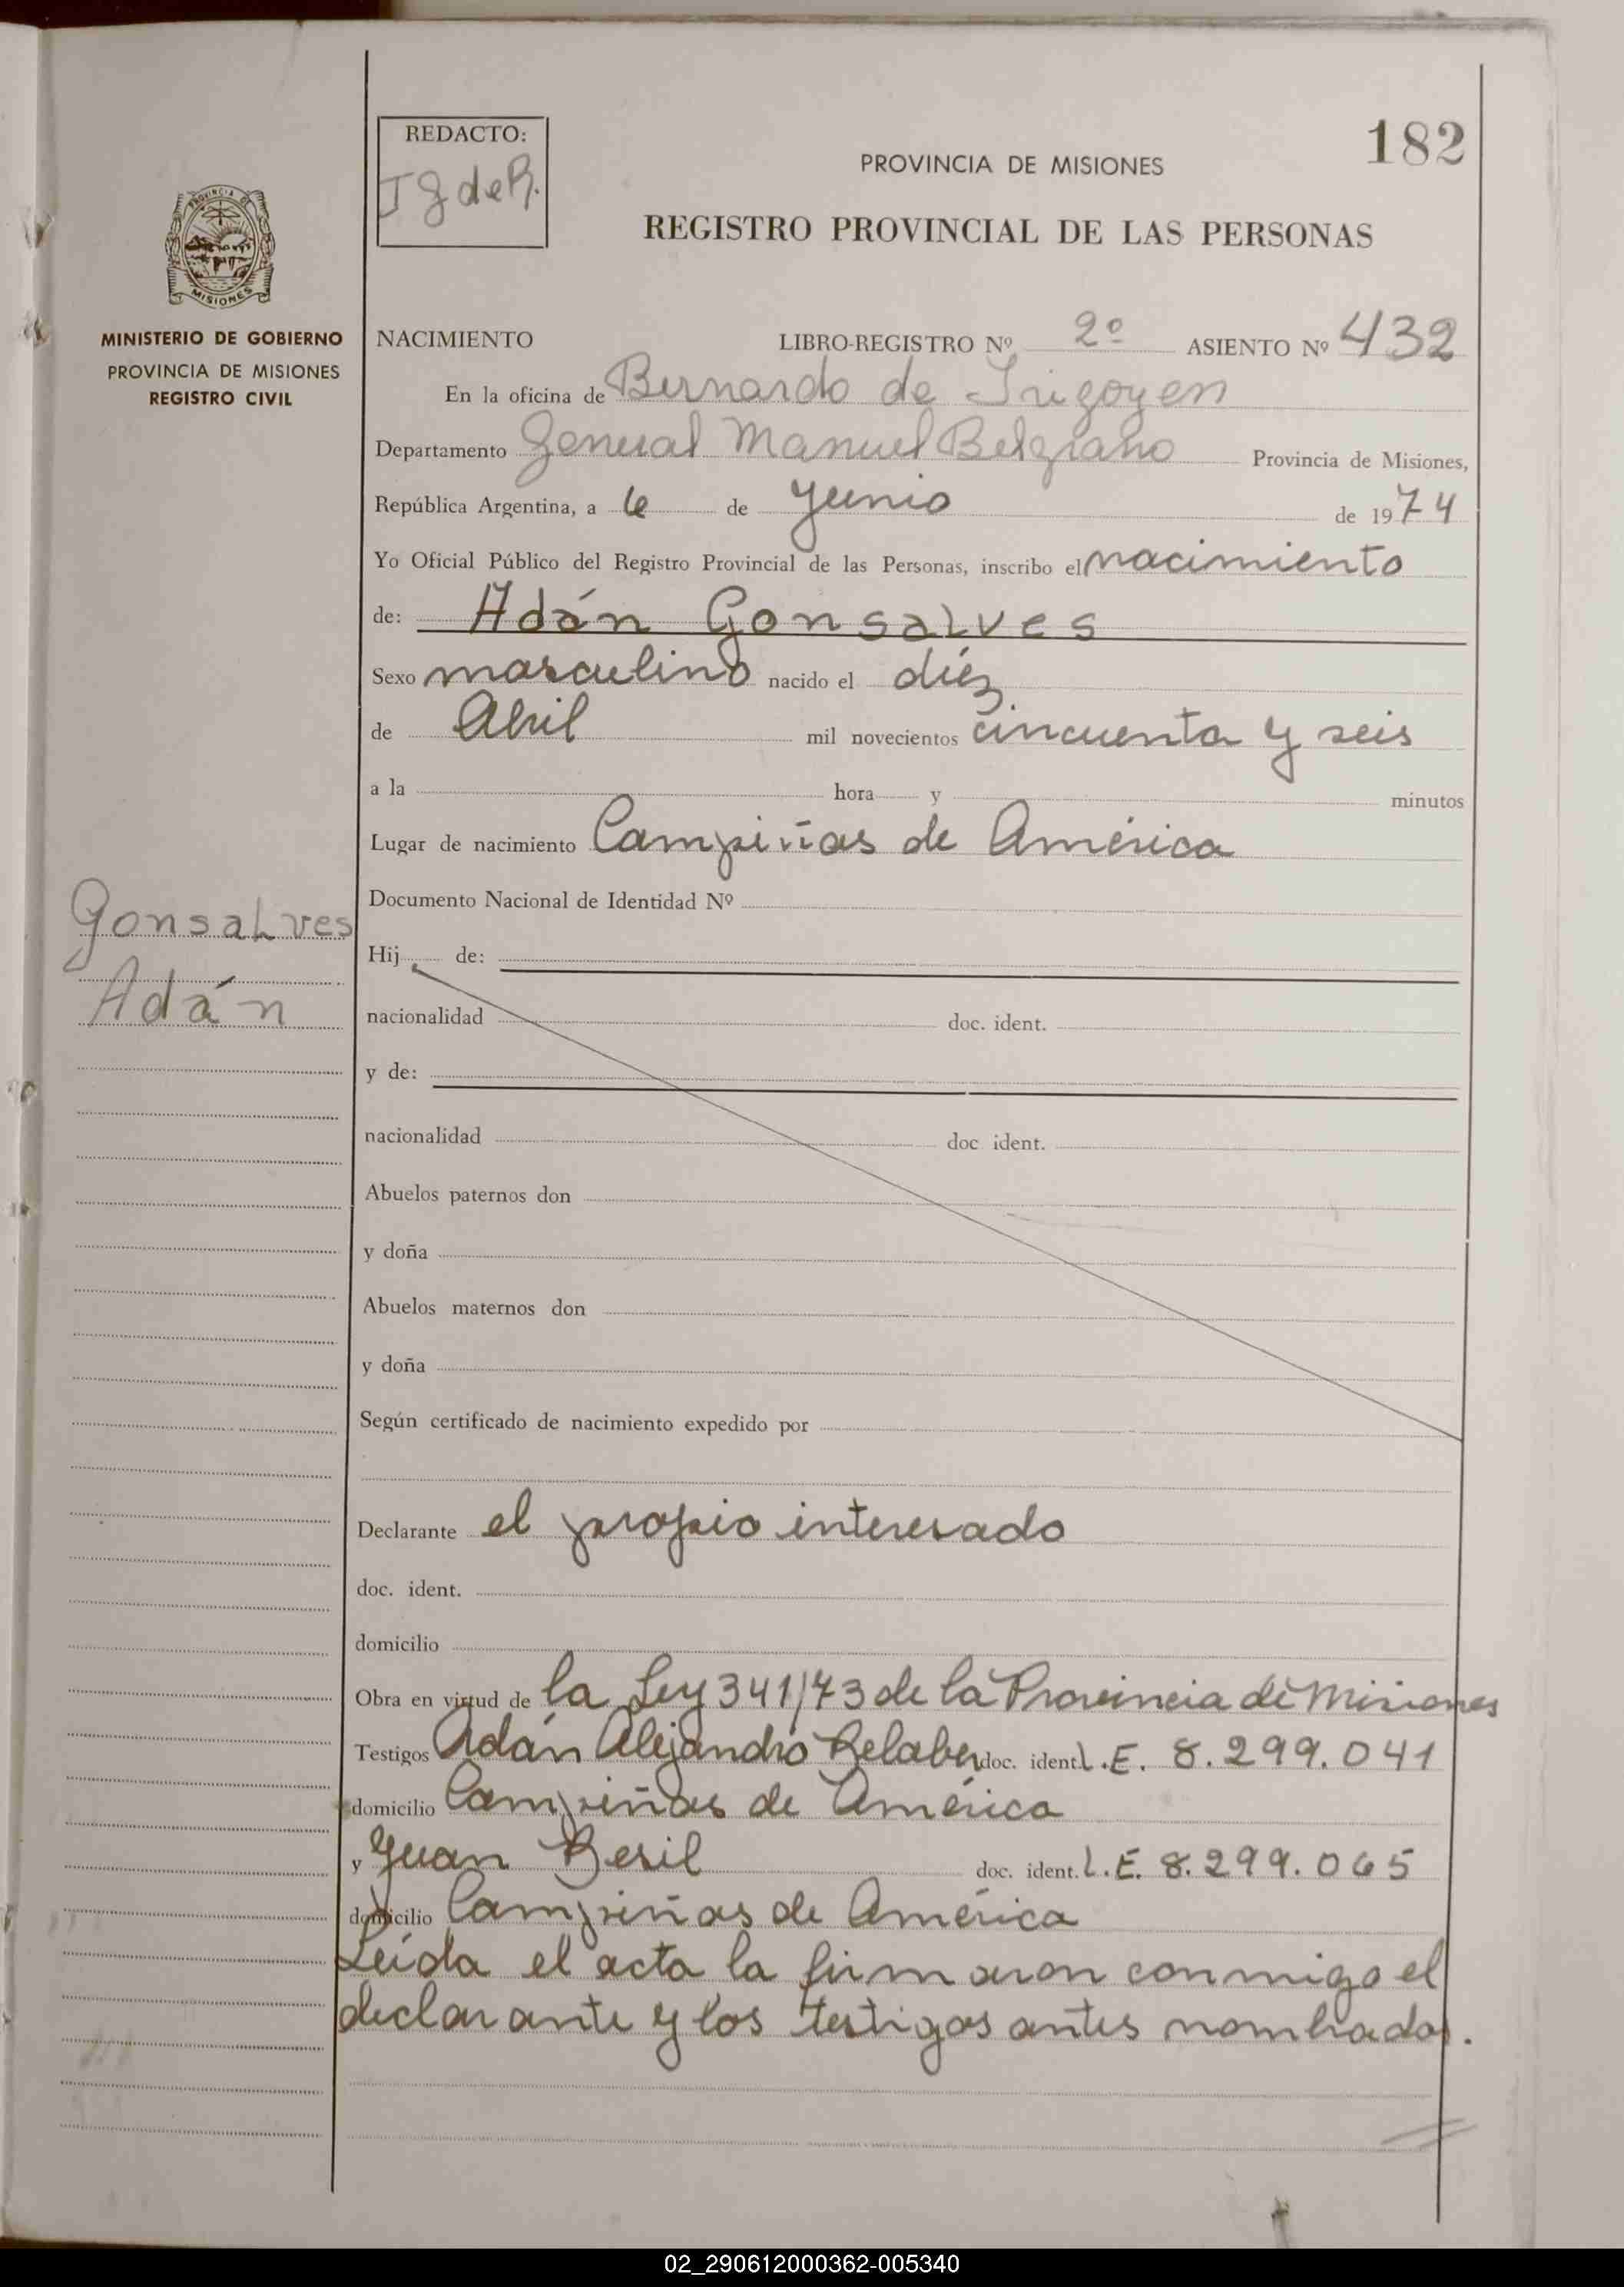 182
REDACTO:
J G de R.
PROVINCIA DE MISIONES
REGISTRO PROVINCIAL DE LAS PERSONAS
PROVINCIA DE
MISIONES
MINISTERIO DE GOBIERNO
PROVINCIA DE MISIONES
REGISTRO CIVIL
NACIMIENTO LIBRO-REGISTRO Nº 2º ASIENTO Nº 432
En la oficina de Bernardo de Irigoyen
Departamento General Manuel Belgrano Provincia de Misiones,
República Argentina, a 6 de Junio de 1974
Yo Oficial Público del Registro Provincial de las Personas, inscribo el nacimiento
de: Adán Gonsalves
Sexo masculino nacido el diéz
de Abril mil novecientos cincuenta y seis
a la hora y minutos
Lugar de nacimiento Campiñas de América
Documento Nacional de Identidad Nº
Gonsalves
Adán
Hij de:
nacionalidad doc. ident.
y de:
nacionalidad doc ident.
Abuelos paternos don
y doña
Abuelos maternos don
y doña
Según certificado de nacimiento expedido por
Declarante el propio interesado
doc. ident.
domicilio
Obra en virtud de la Ley 341/73 de la Provincia de Misiones
Testigos Adán Alejandro doc. ident. L.E. 8.299.041
domicilio Campiñas de América
y Juan doc. ident. L.E. 8.299.065
domicilio Campiñas de América
Leída el acta la firmaron conmigo el
declarante y los testigos antes nombrados.
02_290612000362-005340